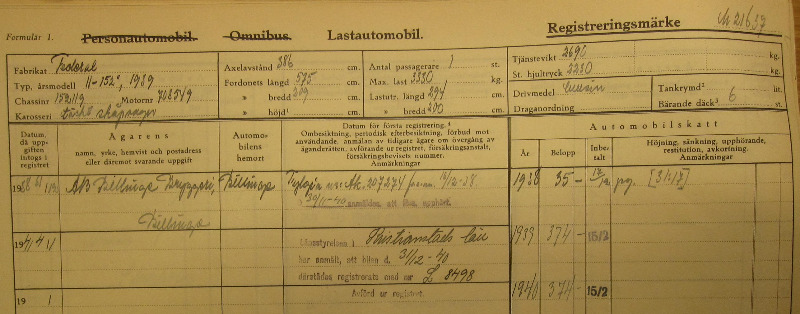 Formulär 1. Personautomobil. Omnibus. Lastautomobil. Registreringsmärke M 21637
Fabrikat Federal
Typ, årsmodell 11-152", 1939
Chassinr 152119 Motornr
Karosseri
Axelavstånd 386 cm.
Fordonets längd 575 cm.
» bredd 209 cm.
» höjd¹ cm.
Antal passagerare 1 st.
Max. last 3330 kg.
Lastutr. längd 294 cm.
» bredd 200 cm.
Tjänstevikt 2690 kg.
St. hjultryck 2230 kg.
Drivmedel bensin
Draganordning
Tankrymd² lit.
Bärande däck³ 6 st.
Datum, då uppgiften intogs i registret
Ägarens
namn, yrke, hemvist och postadress
eller däremot svarande uppgift
Automobilens hemort
Datum för första registrering.⁴
Ombesiktning, periodisk efterbesiktning, förbud mot
användande, anmälan av tidigare ägare om övergång av
äganderätten, avförande ur registret, försäkringsanstalt,
försäkringsbevisets nummer.
Anmärkningar
Automobilskatt
År Belopp Inbetalt Höjning, sänkning, upphörande,
restitution, avkortning.
Anmärkningar
AB Billinge Bryggeri, Billinge
Billinge
30/11-40 anmäldes, att förs. upphört.
1938 35-
1941
Länsstyrelsen i Kristianstads län
har anmält, att bilen d. 31/12-40
därstädes registrerats med nr L 8498
1939 374- 15/2
19 1
Avförd ur registret.
1940 374- 15/2